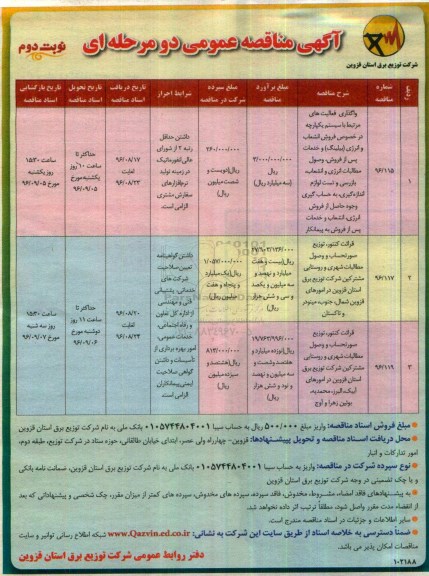 آگهی مناقصه عمومی دو مرحله ای
نوبت دوم
شرکت توزیع برق استان قزوین
ردیف
شماره مناقصه
شرح مناقصه
مبلغ برآورد مناقصه
مبلغ سپرده شرکت در مناقصه
شرایط احراز
تاریخ دریافت اسناد مناقصه
تاریخ تحویل اسناد مناقصه
تاریخ بازگشایی اسناد مناقصه
۱
۹۶/۱۱۵
واگذاری فعالیت های
مرتبط با سیستم یکپارچه
در خصوص فروش انشعاب
و انرژی (بیلینگ) و خدمات
پس از فروش، وصول
مطالبات انرژی و انشعاب،
بازرسی و تست لوازم
اندازه گیری، به حساب گیری
وجوه حاصل از فروش
انرژی، انشعاب و خدمات
پس از فروش به پیمانکار
۳/۰۰۰/۰۰۰/۰۰۰
ریال
(سه میلیارد ریال)
۲۶۰/۰۰۰/۰۰۰
ریال(دویست و
شصت میلیون
ریال)
داشتن حداقل
رتبه ۲ از شورای
عالی انفورماتیک
در زمینه تولید
نرم افزارهای
سفارش مشتری
الزامی است.
۹۶/۰۸/۱۷
لغایت
۹۶/۰۸/۲۳
حداکثر تا
ساعت ۱۰ روز
یکشنبه مورخ
۹۶/۰۹/۰۵
ساعت ۱۵:۳۰
روز یکشنبه
مورخ ۹۶/۰۹/۰۵
۲
۹۶/۱۱۷
قرائت کنتور، توزیع
صورتحساب و وصول
مطالبات شهری و روستایی
مشترکین شرکت توزیع برق
استان قزوین در امورهای
قزوین شمال، جنوب، مینودر
و تاکستان
۲۷/۹۰۳/۱۳۶/۰۰۰
ریال(بیست و هفت
میلیارد و نهصد و
سه میلیون و یکصد
و سی و شش هزار
ریال)
۱/۰۵۷/۰۰۰/۰۰۰
ریال(یک میلیارد
و پنجاه و هفت
میلیون ریال)
داشتن گواهینامه
تعیین صلاحیت
شرکت های
خدماتی، پشتیبانی
و فنی و مهندسی
از اداره کل تعاون
و رفاه اجتماعی،
خدمات عمومی،
امور بهره برداری از
تأسیسات و داشتن
گواهی صلاحیت
ایمنی پیمانکاران
الزامی است.
۹۶/۰۸/۲۰
لغایت
۹۶/۰۸/۲۴
حداکثر تا
ساعت ۱۱ روز
دوشنبه مورخ
۹۶/۰۹/۰۶
ساعت ۱۵:۳۰
روز سه شنبه
مورخ ۹۶/۰۹/۰۷
۳
۹۶/۱۱۹
قرائت کنتور، توزیع
صورتحساب و وصول
مطالبات شهری و روستایی
مشترکین شرکت توزیع برق
استان قزوین در امورهای
آبیک، البرز، محمدیه،
بوئین زهرا و آوج
ریال(نوزده میلیارد و
هفتصد و شصت و
سه میلیون و نهصد
و نود و شش هزار
ریال)
۸۱۳/۰۰۰/۰۰۰
ریال(هشتصد و
سیزده میلیون
ریال)
• مبلغ فروش اسناد مناقصه: واریز مبلغ ۵۰۰/۰۰۰ ریال به حساب سیبا ۰۱۰۵۷۴۴۸۰۴۰۰۱ بانک ملی به نام شرکت توزیع برق استان قزوین
• محل دریافت اسناد مناقصه و تحویل پیشنهادها: قزوین- چهارراه ولی عصر، ابتدای خیابان طالقانی، حوزه ستاد در شرکت توزیع، طبقه دوم، امور تدارکات و انبار
• نوع سپرده شرکت در مناقصه: واریز به حساب سیبا ۰۱۰۵۷۴۴۸۰۴۰۰۱ بانک ملی به نام شرکت توزیع برق استان قزوین، ضمانت نامه بانکی و یا چک تضمینی در وجه شرکت توزیع برق استان قزوین
• به پیشنهادهای فاقد امضاء، مشروط، مخدوش، فاقد سپرده، سپرده های مخدوش، سپرده های کمتر از میزان مقرر، چک شخصی و پیشنهاداتی که بعد از انقضاء مدت مقرر واصل شود، مطلقاً ترتیب اثر داده نخواهد شد.
• سایر اطلاعات و جزئیات در اسناد مناقصه مندرج است.
• ضمناً دسترسی به خلاصه اسناد از طریق سایت این شرکت به نشانی: www.Qazvin.ed.co.ir شبکه اطلاع رسانی توانیر و سایت مناقصات امکان پذیر می باشد.
دفتر روابط عمومی شرکت توزیع برق استان قزوین
۱۰۲۱۸۸